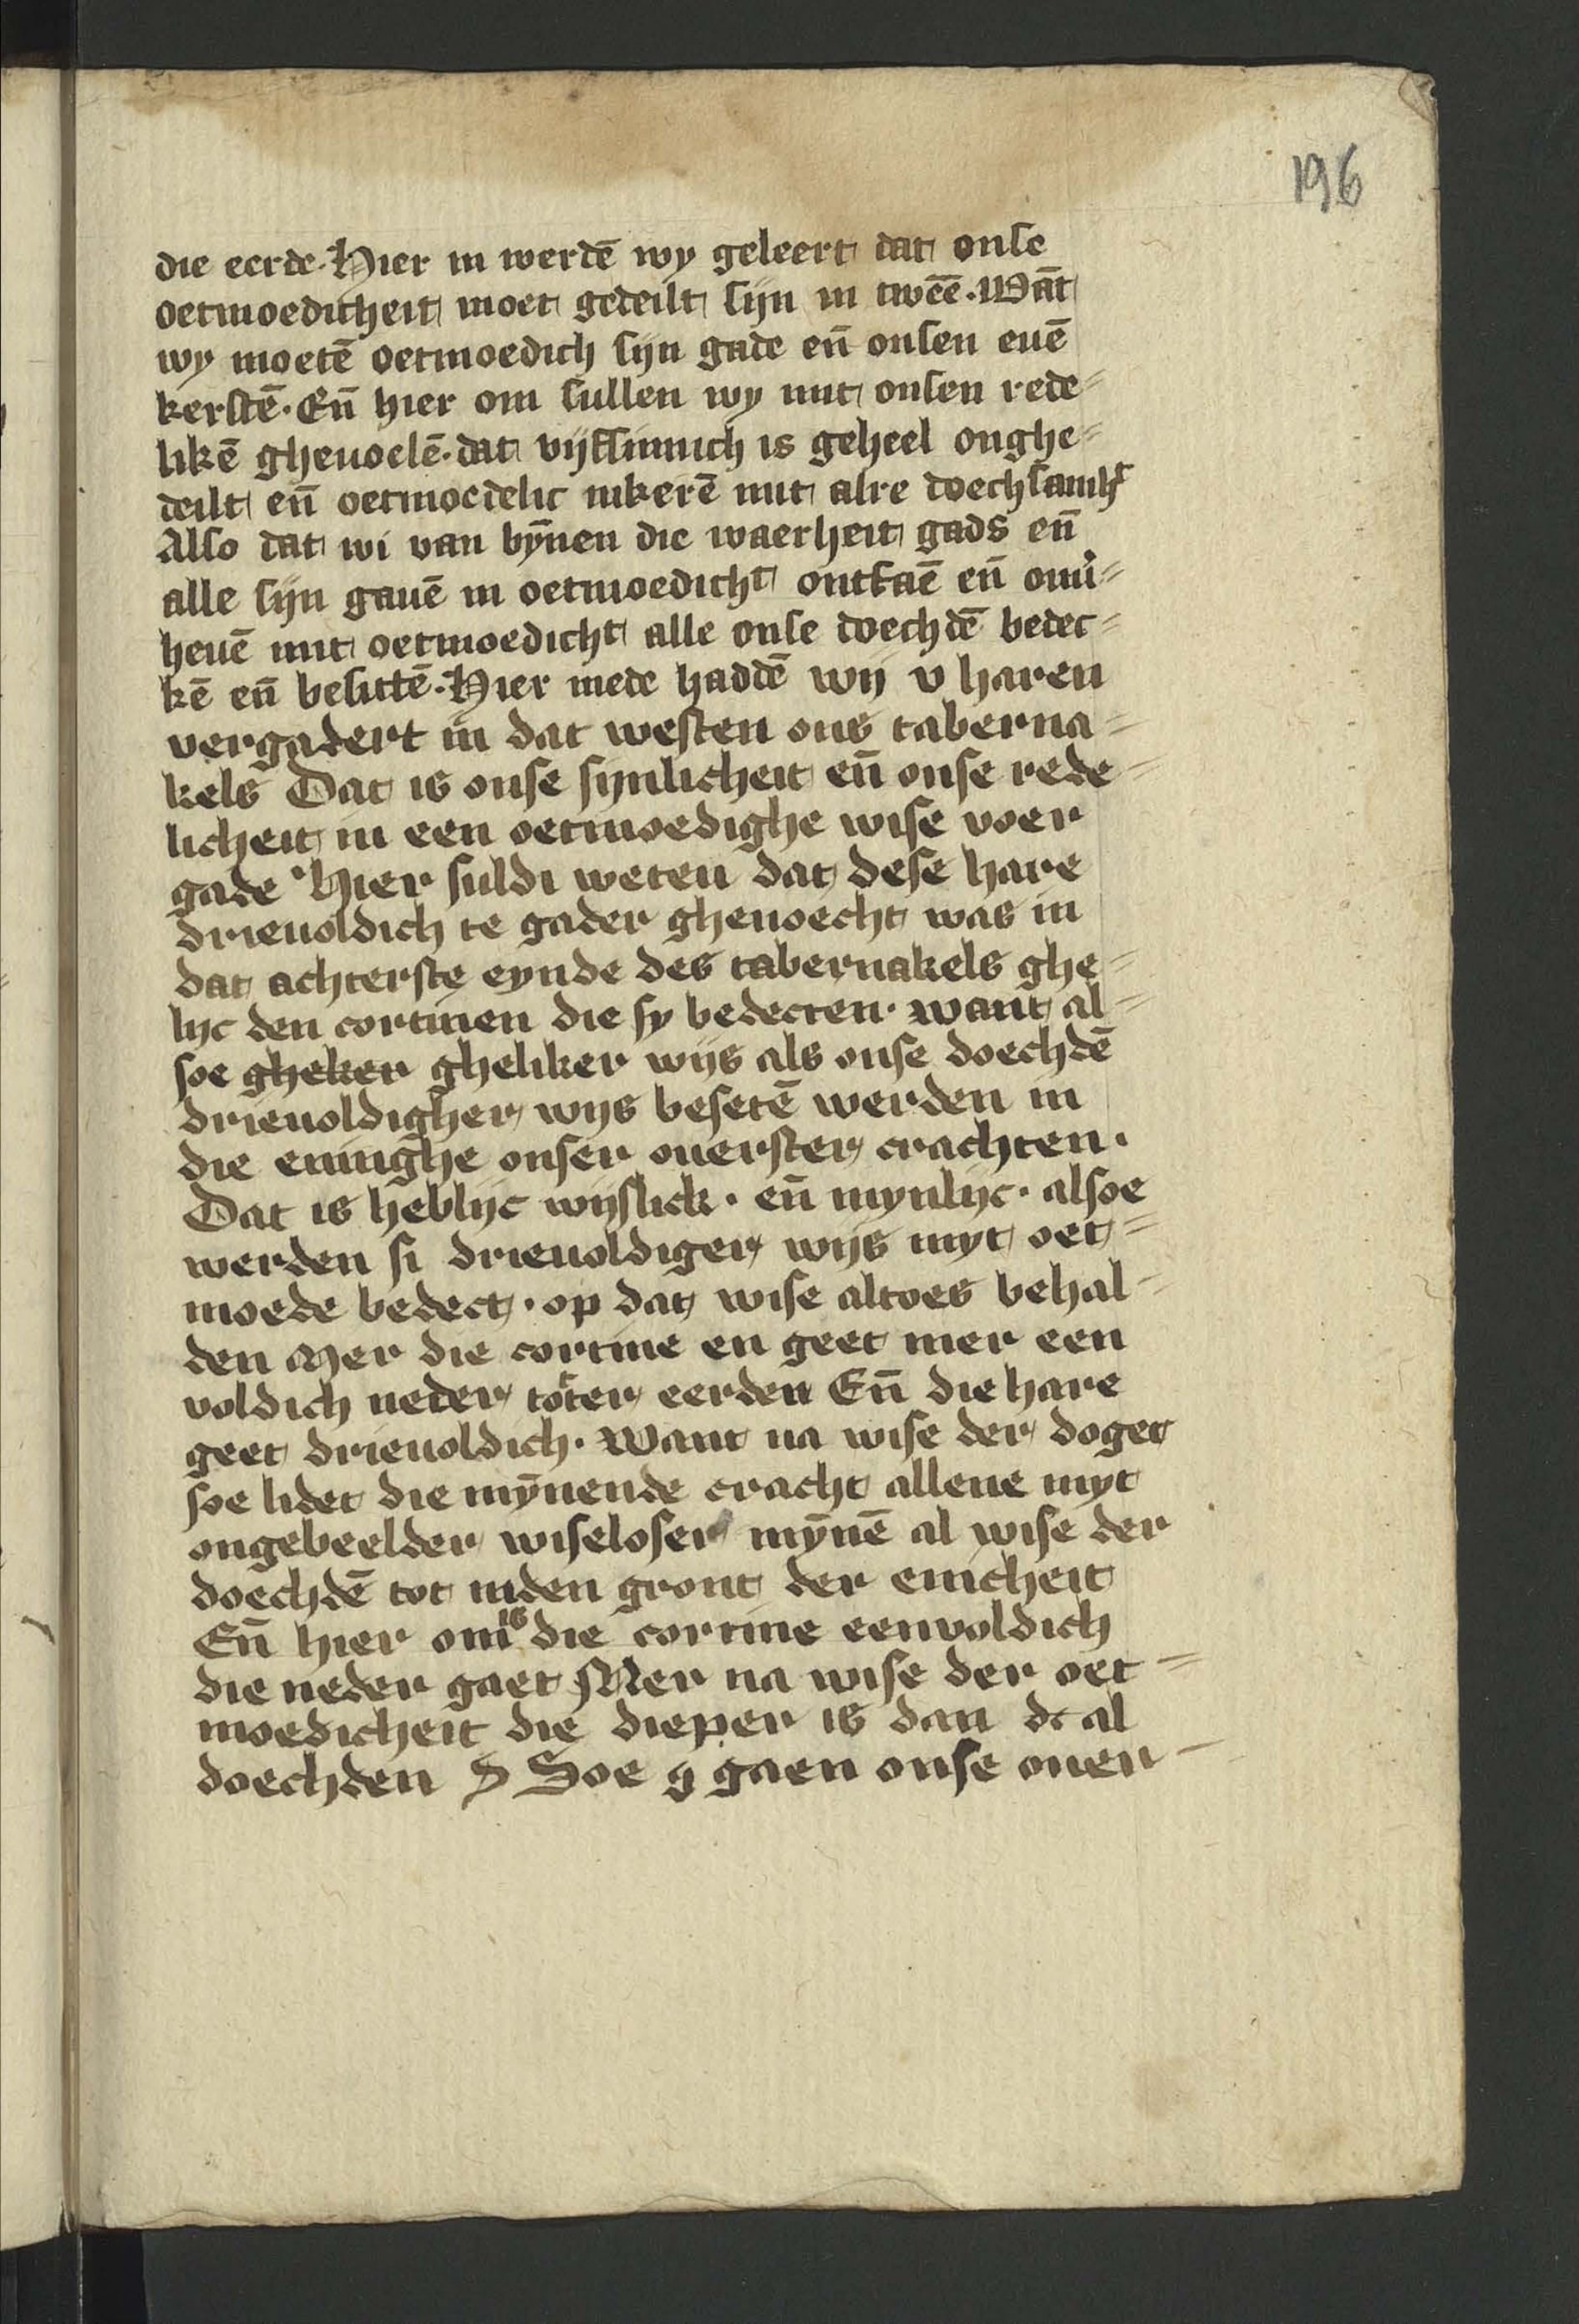 196
die eerde. Hier in werdē wy geleert dat onse
oetmoedicheit moet gedeilt sijn in tweē. Wāt
wy moetē oetmoedich sijn gade eñ onsen euē
kerstē. Eñ hier om sullen wy mit onsen rede⸗
likē gheuoelē. dat vijfsinnich is geheel onghe⸗
deilt eñ oetmoedelic inkerē mit alre doechsamht
Also dat wi van bȳnen die waerheit gads eñ
alle sijn gauē in oetmoedicht ontfaē eñ onu̇⸗
heuē mit oetmoedicht alle onse doechdē bedec⸗
kē eñ besittē. Hier mede haddē wij v haren
vergadert in dat westen ons taberna⸗
kels Dat is onse synlicheit eñ onse rede⸗
licheit in een oetmoedighe wise voer
gade Hier suldi weten dat dese hare
drieuoldich te gader gheuoecht was in
dat achterste eynde des tabernakels ghe⸗
lijc den cortinen die sy bedecten. want al⸗
soe gheker gheliker wijs als onse doechdē
drieuoldigher wijs besetē werden in
die eninghe onser ouerster crachten.
Dat is heblijc wijslick. eñ mynlijc. alsoe
werden si drieuoldiger wijs myt oet⸗
moede bedect. op dat wise altoes behal⸗
den Mer die cortine en geet mer een
voldich neder toter eerden Eñ die hare
geet drieuoldich. Want na wise der doget
soe lidet die mȳnende cracht allene myt
ongebeelder wiseloser mȳnē al wise der
doechdē tot inden gront der enicheit
Eñ hier om is die cortine eenvoldich
die neder gaet Mer na wise der oet⸗
moedicheit die dieper is dan dc al
doechden S Soe g gaen onse ouen⸗